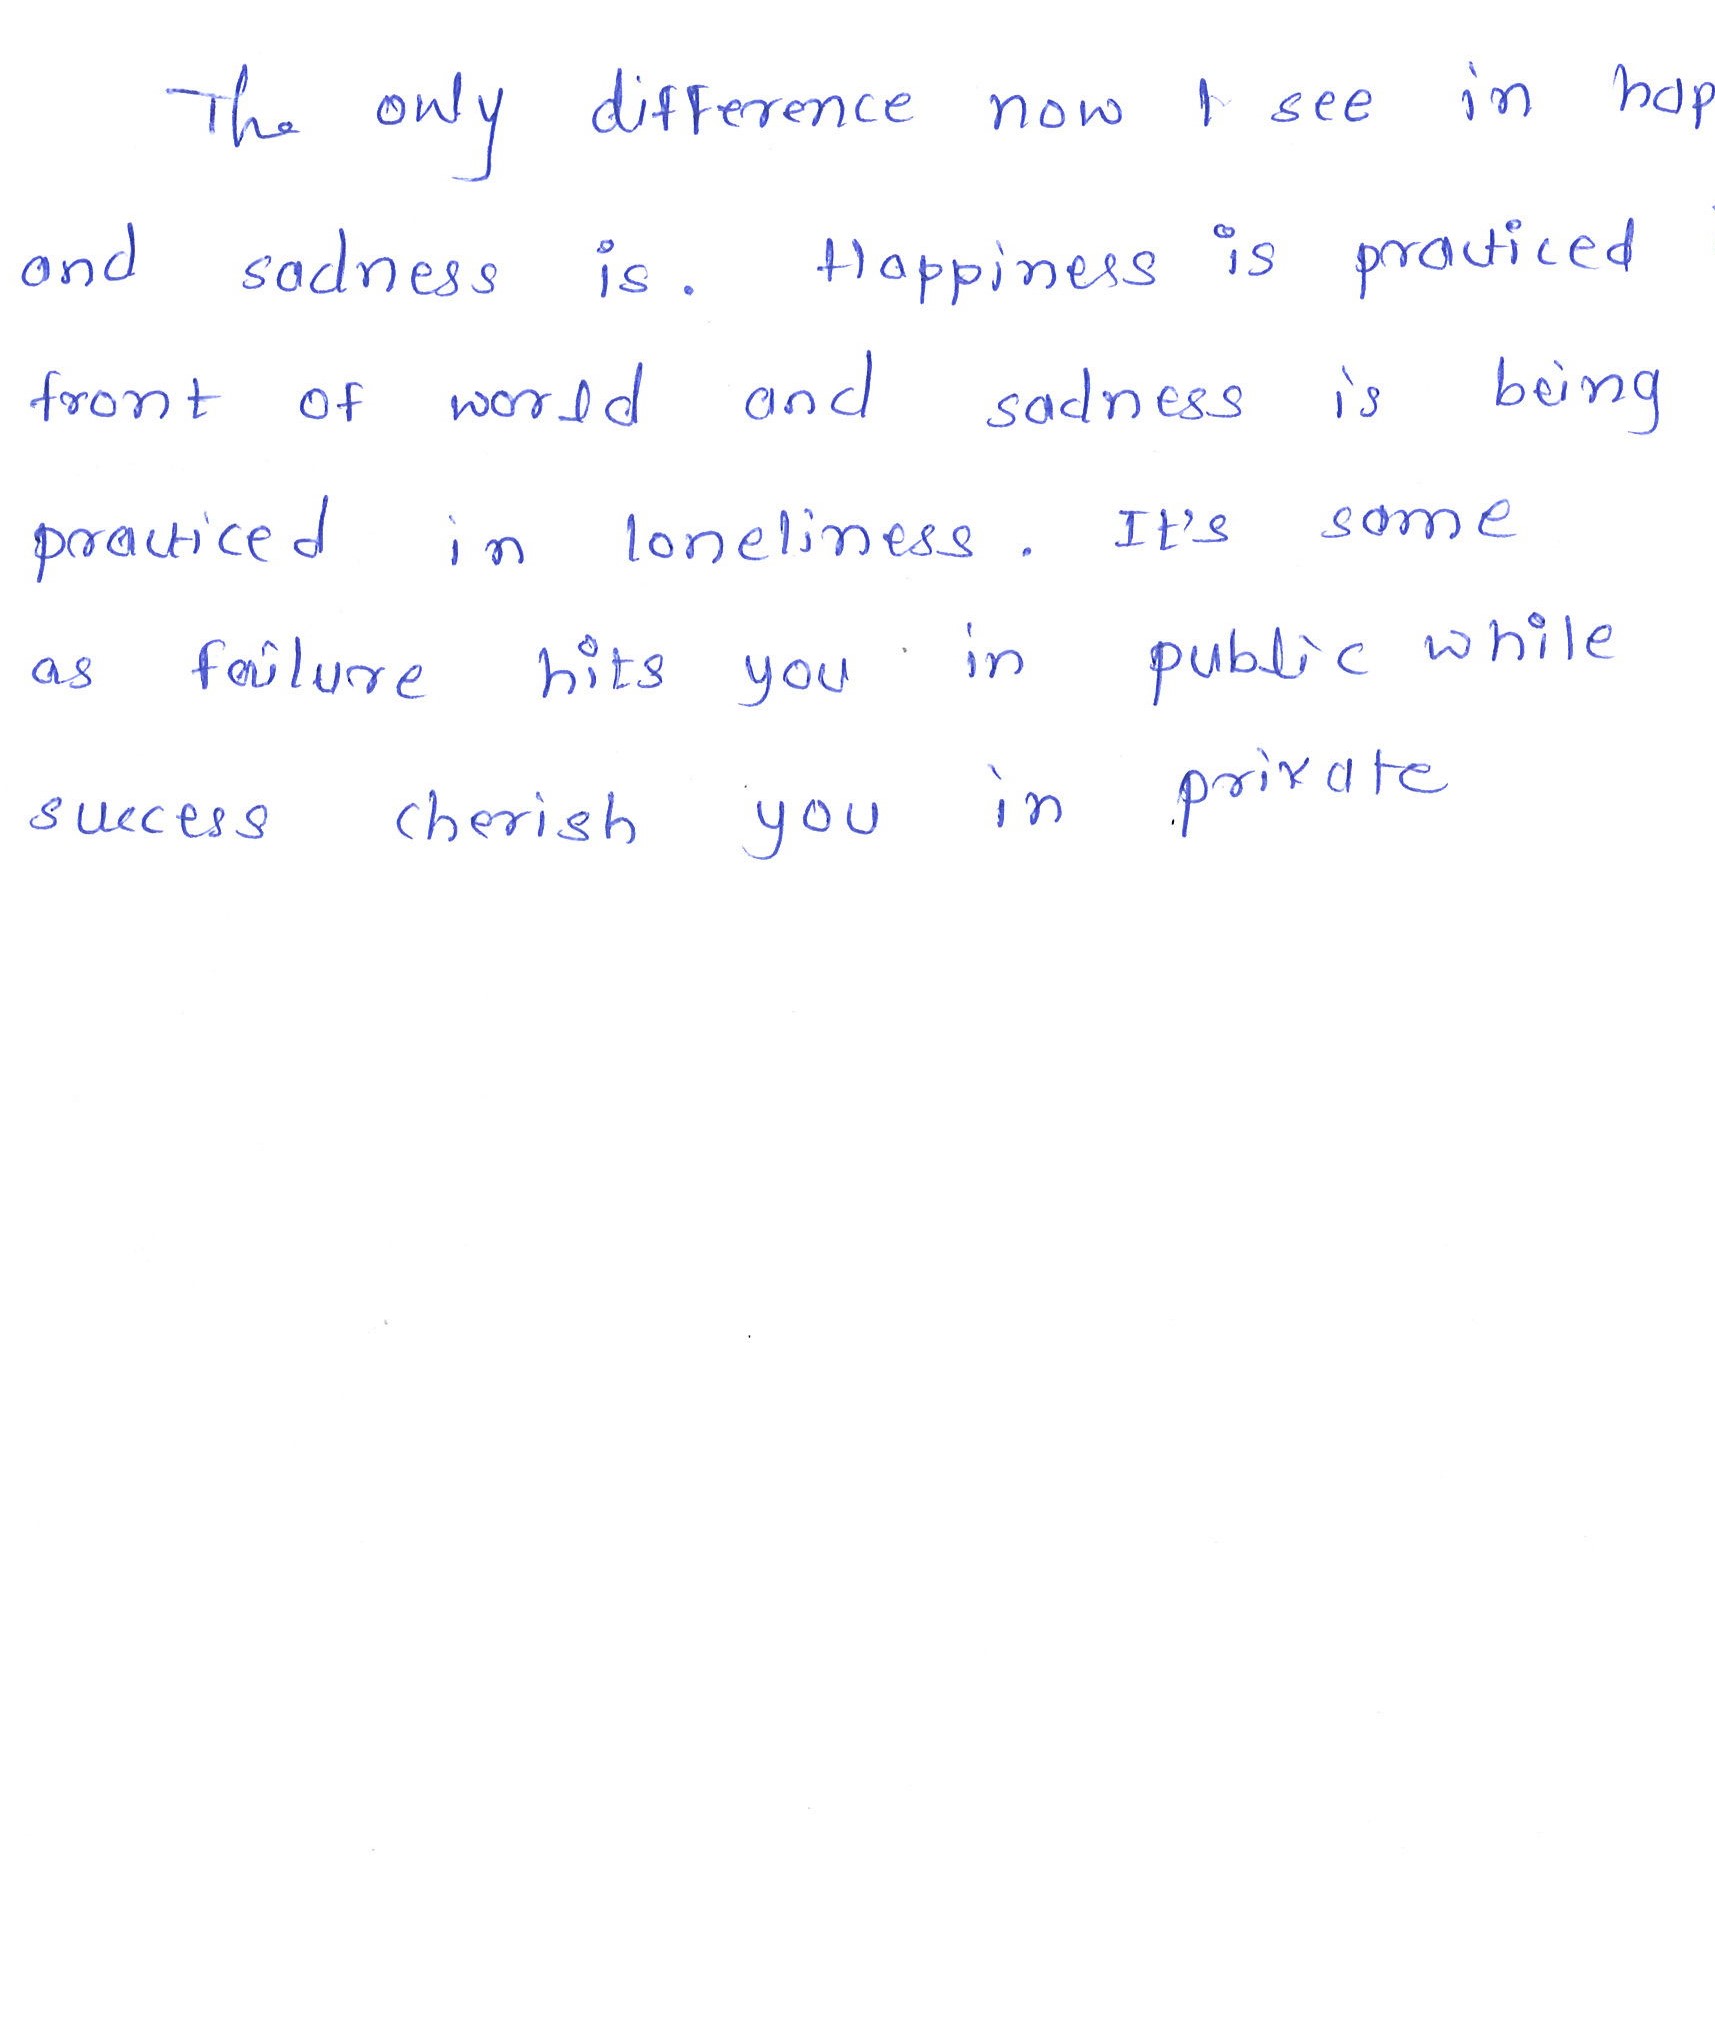 The only difference now I see in hap
and sadness is. Happiness is practiced
front of world and sadness is being
practiced in loneliness. It's same
as failure hits you in public while
success cherish you in private